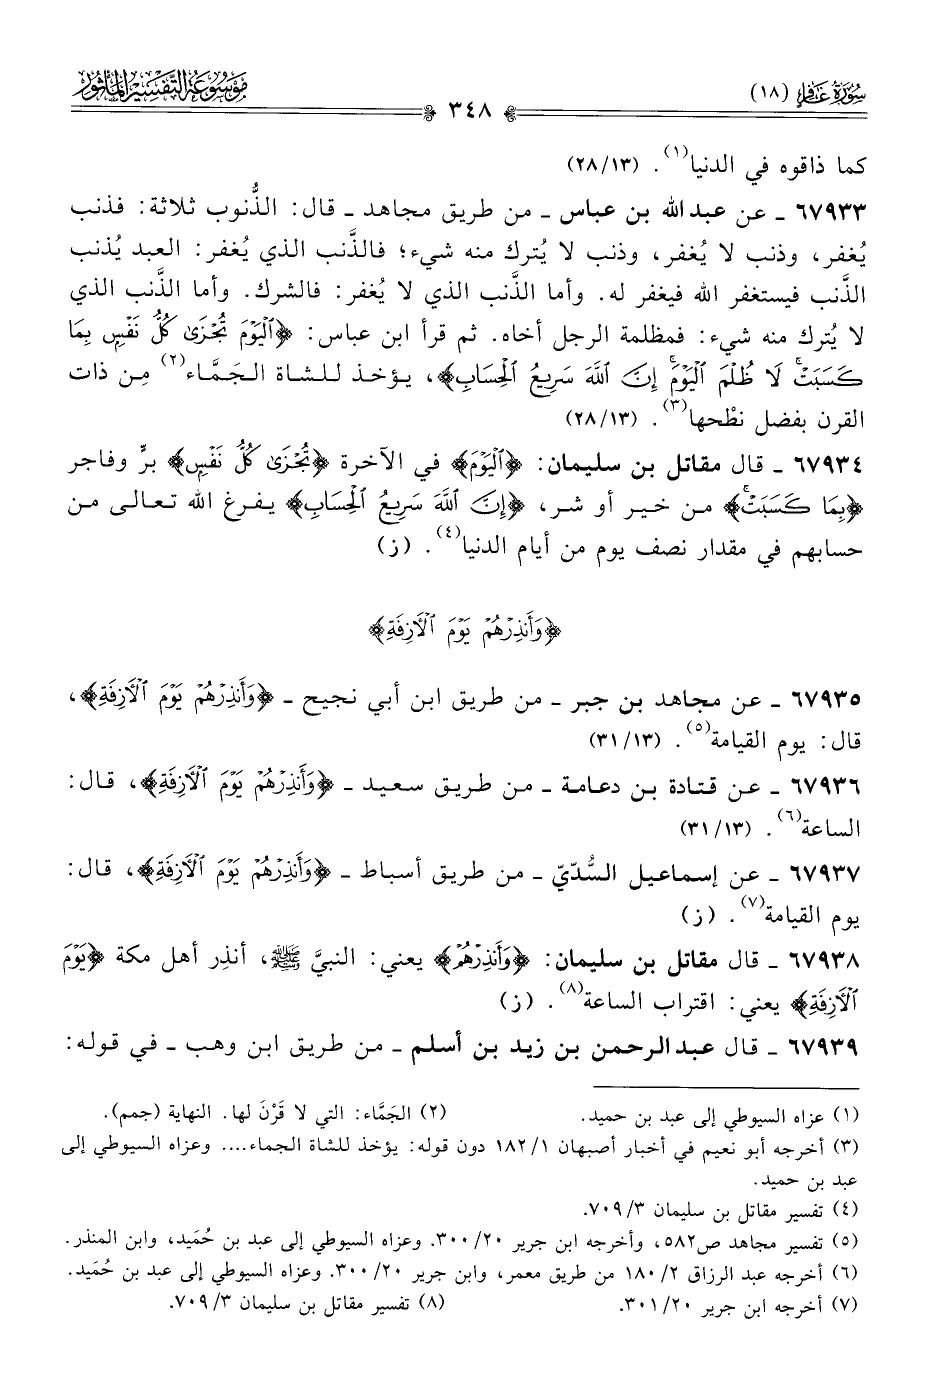 سُورَةُ غَافِرٍ (١٨)
٣٤٨
مَوْسُوعَة التَّفْسِيرِ المَأْثُور
كما ذاقوه في الدنيا(١). (٢٨/١٣)
٦٧٩٣٣ ـ عن عبد الله بن عباس ـ من طريق مجاهد ـ قال: الذُّنوب ثلاثة: فذنب
يُغفر، وذنب لا يُغفر، وذنب لا يُترك منه شيء؛ فالذَّنب الذي يُغفر: العبد يُذنب
الذَّنب فيستغفر الله فيغفر له. وأما الذَّنب الذي لا يُغفر: فالشرك. وأما الذَّنب الذي
لا يُترك منه شيء: فمظلمة الرجل أخاه. ثم قرأ ابن عباس: ﴿ٱلْيَوْمَ تُجْزَىٰ كُلُّ نَفْسٍۭ بِمَا
كَسَبَتْ ۚ لَا ظُلْمَ ٱلْيَوْمَ ۚ إِنَّ ٱللَّهَ سَرِيعُ ٱلْحِسَابِ﴾، يؤخذ للشاة الجَمَّاء(٢) مِن ذات
القرن بفضل نطْحها(٣). (٢٨/١٣)
٦٧٩٣٤ ـ قال مقاتل بن سليمان: ﴿ٱلْيَوْمَ﴾ في الآخرة ﴿تُجْزَىٰ كُلُّ نَفْسٍ﴾ برٍّ وفاجر
﴿بِمَا كَسَبَتْ ۚ﴾ من خير أو شر، ﴿إِنَّ ٱللَّهَ سَرِيعُ ٱلْحِسَابِ﴾ يفرغ الله تعالى من
حسابهم في مقدار نصف يوم من أيام الدنيا(٤). (ز)
﴿وَأَنذِرْهُمْ يَوْمَ ٱلْأَزِفَةِ﴾
٦٧٩٣٥ ـ عن مجاهد بن جبر ـ من طريق ابن أبي نجيح ـ ﴿وَأَنذِرْهُمْ يَوْمَ ٱلْأَزِفَةِ﴾،
قال: يوم القيامة(٥). (٣١/١٣)
٦٧٩٣٦ ـ عن قتادة بن دعامة ـ من طريق سعيد ـ ﴿وَأَنذِرْهُمْ يَوْمَ ٱلْأَزِفَةِ﴾، قال:
الساعة(٦). (٣١/١٣)
٦٧٩٣٧ ـ عن إسماعيل السُّدّيّ ـ من طريق أسباط ـ ﴿وَأَنذِرْهُمْ يَوْمَ ٱلْأَزِفَةِ﴾، قال:
يوم القيامة(٧). (ز)
٦٧٩٣٨ ـ قال مقاتل بن سليمان: ﴿وَأَنذِرْهُمْ﴾ يعني: النبيَّ ﷺ، أنذِر أهل مكة ﴿يَوْمَ
ٱلْأَزِفَةِ﴾ يعني: اقتراب الساعة(٨). (ز)
٦٧٩٣٩ ـ قال عبد الرحمن بن زيد بن أسلم ـ من طريق ابن وهب ـ في قوله:
(١) عزاه السيوطي إلى عبد بن حميد. (٢) الجَمَّاء: التي لا قَرْنَ لها. النهاية (جمم).
(٣) أخرجه أبو نعيم في أخبار أصبهان ١٨٢/١ دون قوله: يؤخذ للشاة الجماء.... وعزاه السيوطي إلى
عبد بن حميد.
(٤) تفسير مقاتل بن سليمان ٧٠٩/٣.
(٥) تفسير مجاهد ص٥٨٢، وأخرجه ابن جرير ٣٠٠/٢٠. وعزاه السيوطي إلى عبد بن حُمَيد، وابن المنذر.
(٦) أخرجه عبد الرزاق ١٨٠/٢ من طريق معمر، وابن جرير ٣٠٠/٢٠. وعزاه السيوطي إلى عبد بن حُمَيد.
(٧) أخرجه ابن جرير ٣٠١/٢٠. (٨) تفسير مقاتل بن سليمان ٧٠٩/٣.